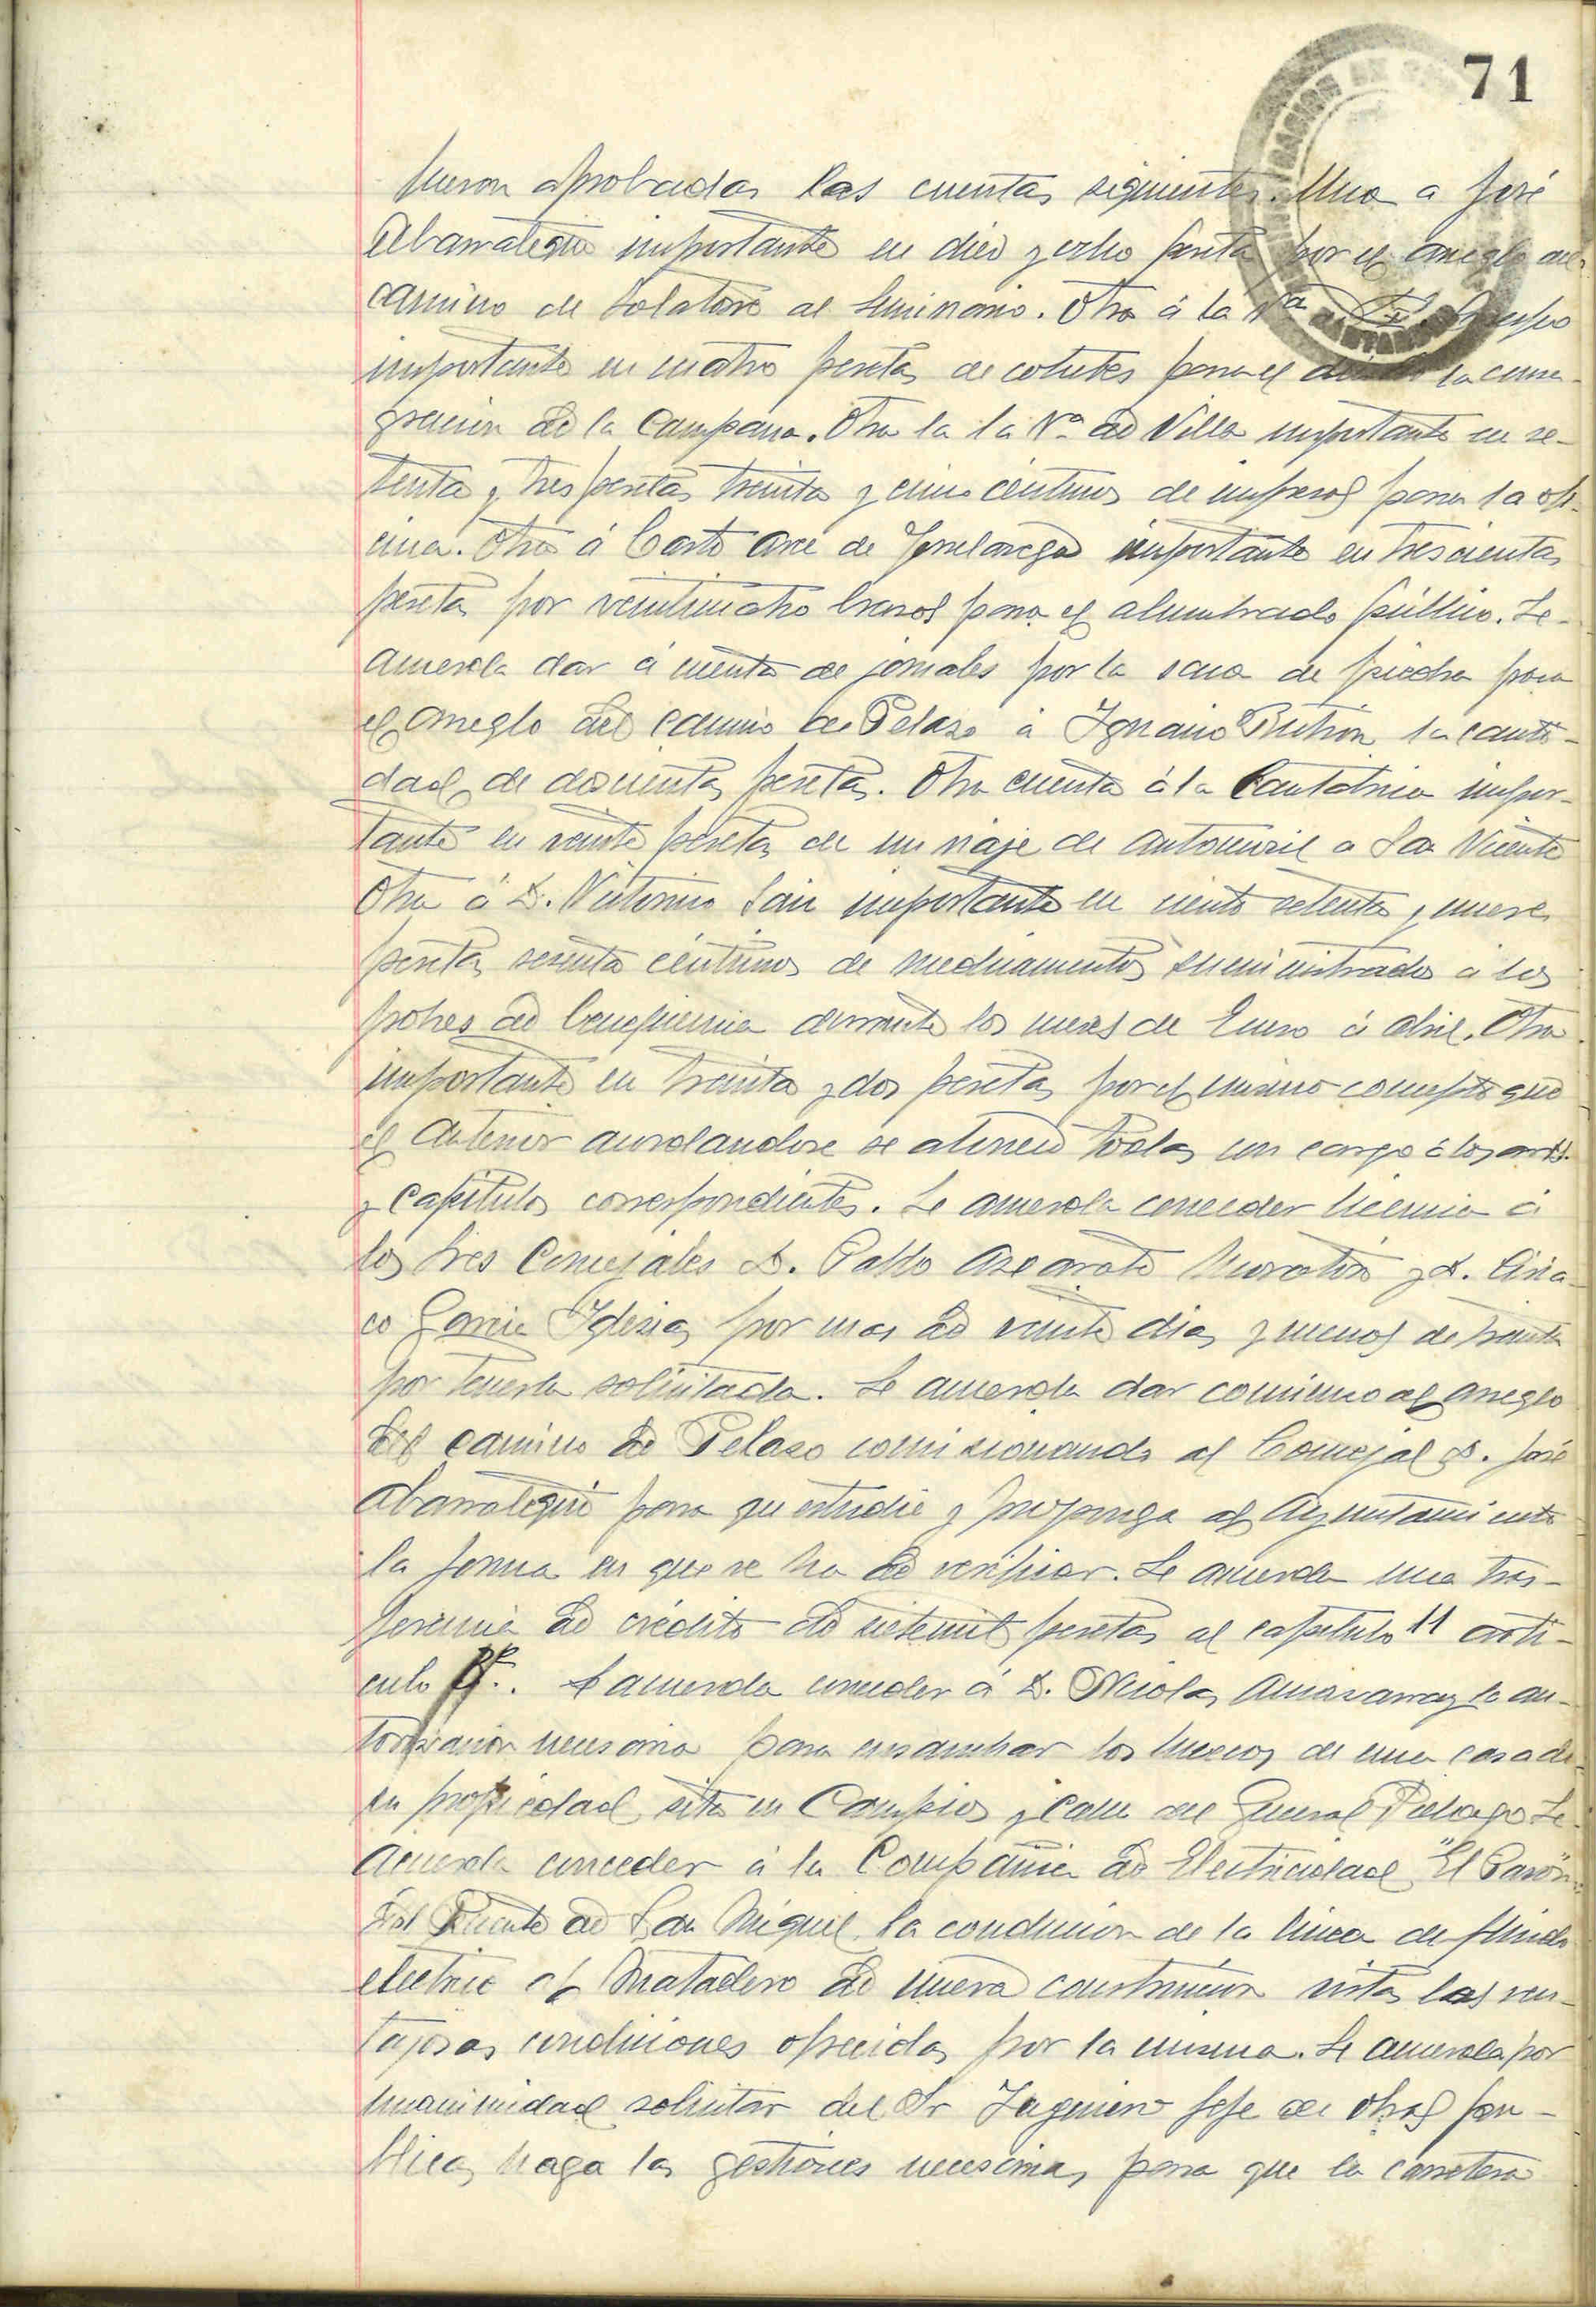 71
fueron aprobadas las cuentas siguientes. Una a José
Abarrategui importante en diez y ocho pesetas por el arreglo del
camino de Solatorre al Seminario. Otra á la Vda de
importante en cuatro pesetas de cohetes para el dia de la consa-
gración de la Campana. Otra la la Vª de Villa importante en se-
tenta y tres pesetas treinta y cinco céntimos de impresos para la ofi-
cina. Otra á Casto Arce de Torrelavega importante en trescientas
pesetas por veinticuatro brazos para el alumbrado público. Se
acuerda dar á cuenta de jornales por la saca de piedra para
el arreglo del camino de Pelazo á Ignacio Butrón la canti-
dad de doscientas pesetas. Otra cuenta á la Cantábrica impor-
tante en veinte pesetas de un viaje de automovil a San Vicente
Otra á D. Victorino Sainz importante en ciento setenta y nueve
pesetas sesenta céntimos de medicamentos suministrados á los
pobres de beneficencia durante los meses de Enero á Abril. Otra
importante en treinta y dos pesetas por el mismo concepto que
el anterior acordandose se abonen todas con cargo á los arts.
y capítulos correspondientes. Se acuerda conceder licencia á
los tres Concejales D. Pablo Azcarate Moratin y D. Ciria-
co Garcia Iglesias por mas de veinte dias y menos de treinta
por tenerla solicitada. Se acuerda dar comienzo al arreglo
del camino de Pelazo comisionando al Concejal D. José
Abarrategui para que estudie y proponga al Ayuntamiento
la forma en que se ha de verificar. Se acuerda una tras-
ferencia de crédito de sietemil pesetas al capítulo 11 artí-
culo Se acuerda conceder á D. Nicolas la au-
torización necesaria para ensanchar los huecos de una casa de
su propiedad sita en Campios y calle del General Piélago Se
acuerda conceder á la Compañia de Electricidad "El Pasón"
del Puente de San Miguel la conducion de la linea de fluido
electrico al Matadero de nueva construcción vistas las ven-
tajosas condiciones ofrecidas por la misma. Se acuerda por
unanimidad solicitar del Sr Ingeniero Jefe de obras pu-
blicas haga las gestiones necesarias para que la carretera